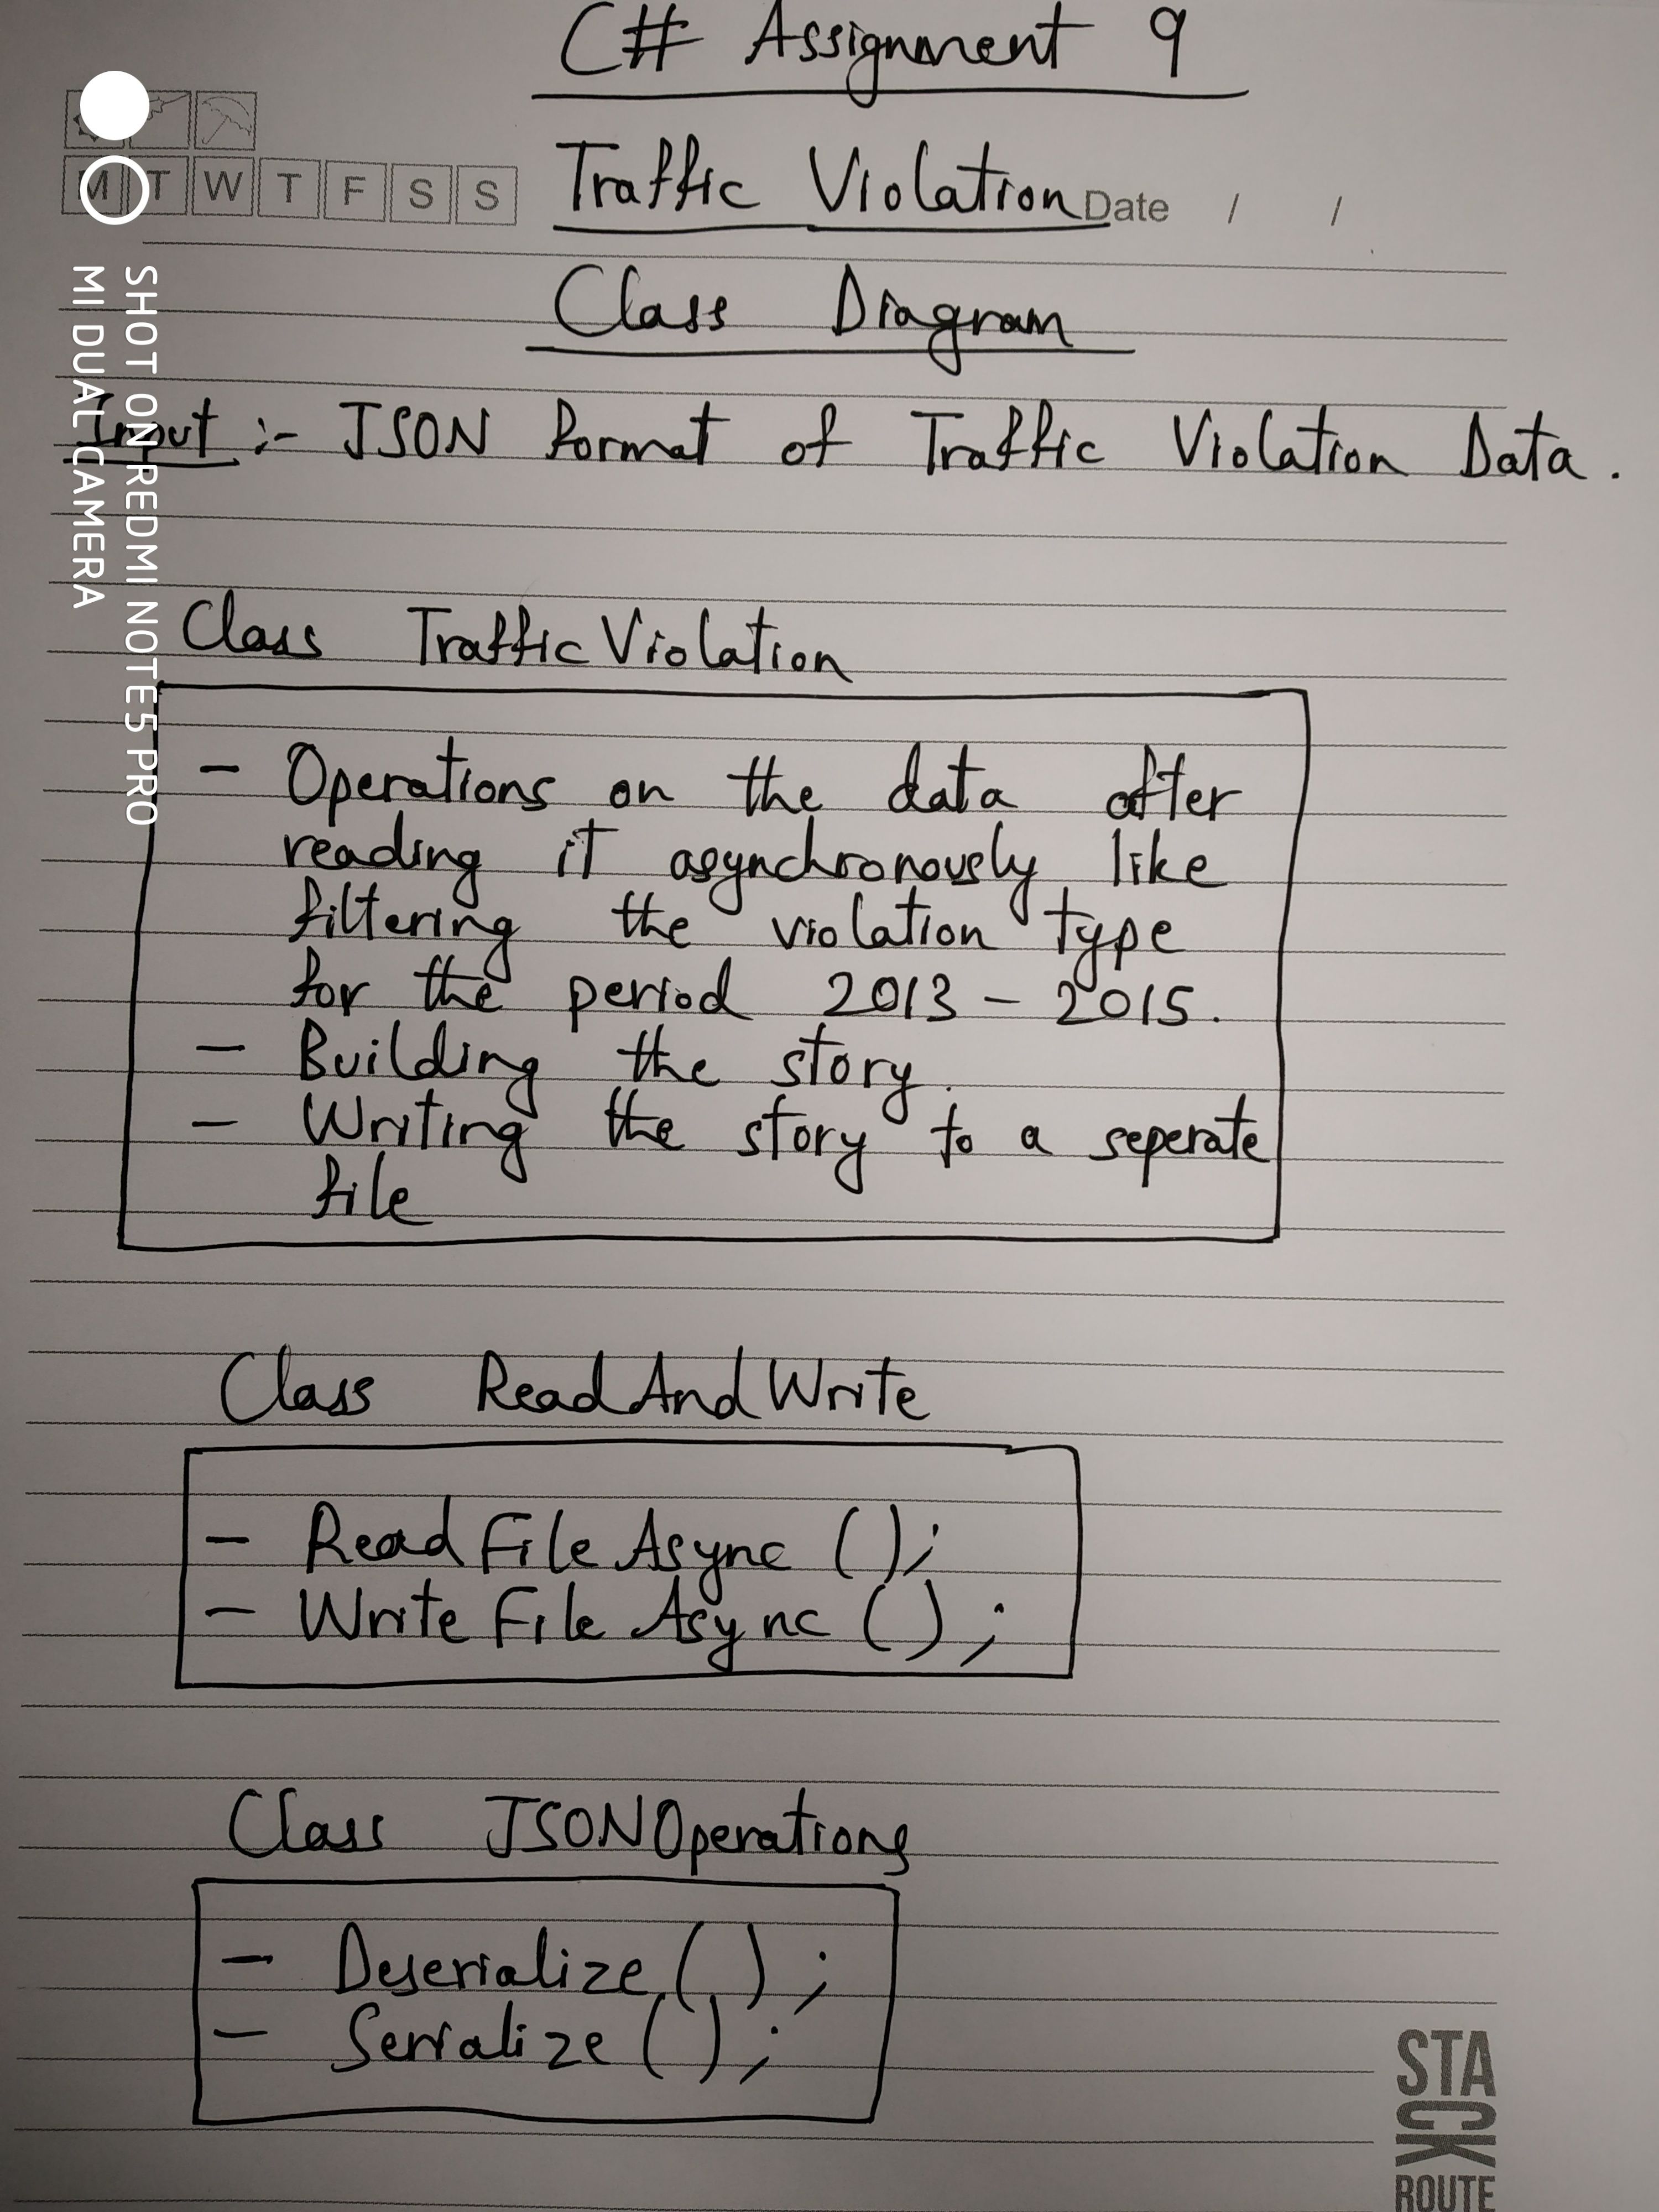 C# Assignment 9
M T W T F S S
Traffic Violation
Date / /
Class Diagram
Input :- JSON format of Traffic Violation Data.
Class TrafficViolation
- Operations on the data after
reading it asynchronously like
filtering the violation type
for the period 2013 - 2015.
- Building the story.
- Writing the story to a seperate
file
Class ReadAndWrite
- ReadFileAsync ();
- WriteFileAsync ();
Class JSONOperations
- Deserialize ();
- Serialize ();
SHOT ON REDMI NOTE 5 PRO
MI DUAL CAMERA
STA
CK
ROUTE